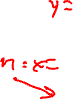 y=
n:x=